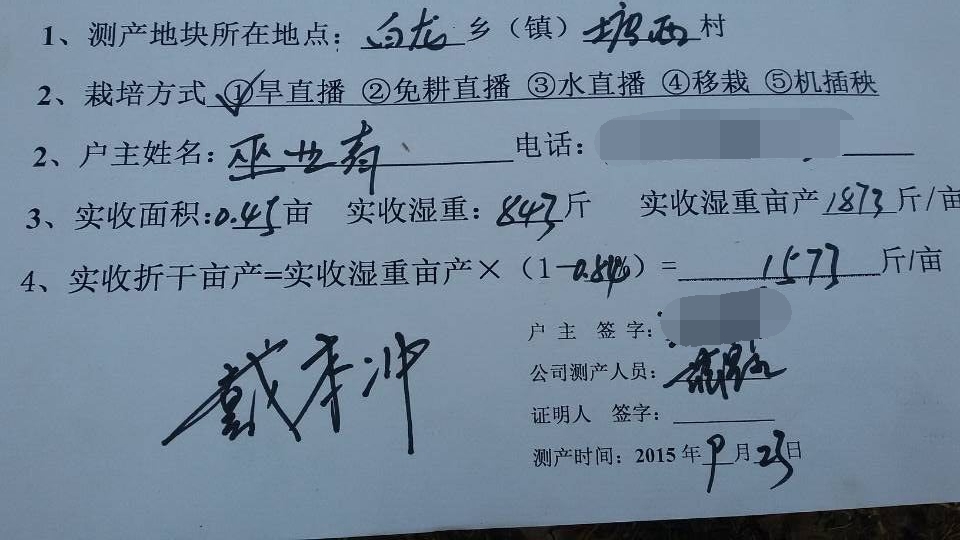 1、测产地块所在地点：白龙乡（镇）塘西村
2、栽培方式 ①旱直播 ②免耕直播 ③水直播 ④移栽 ⑤机插秧
2、户主姓名：巫世寿 电话：
3、实收面积：0.45亩 实收湿重：843斤 实收湿重亩产1873斤/亩
4、实收折干亩产=实收湿重亩产×（1-）=1573斤/亩
户主 签字：
公司测产人员：
证明人 签字：
测产时间：2015年9月23日
戴李冲